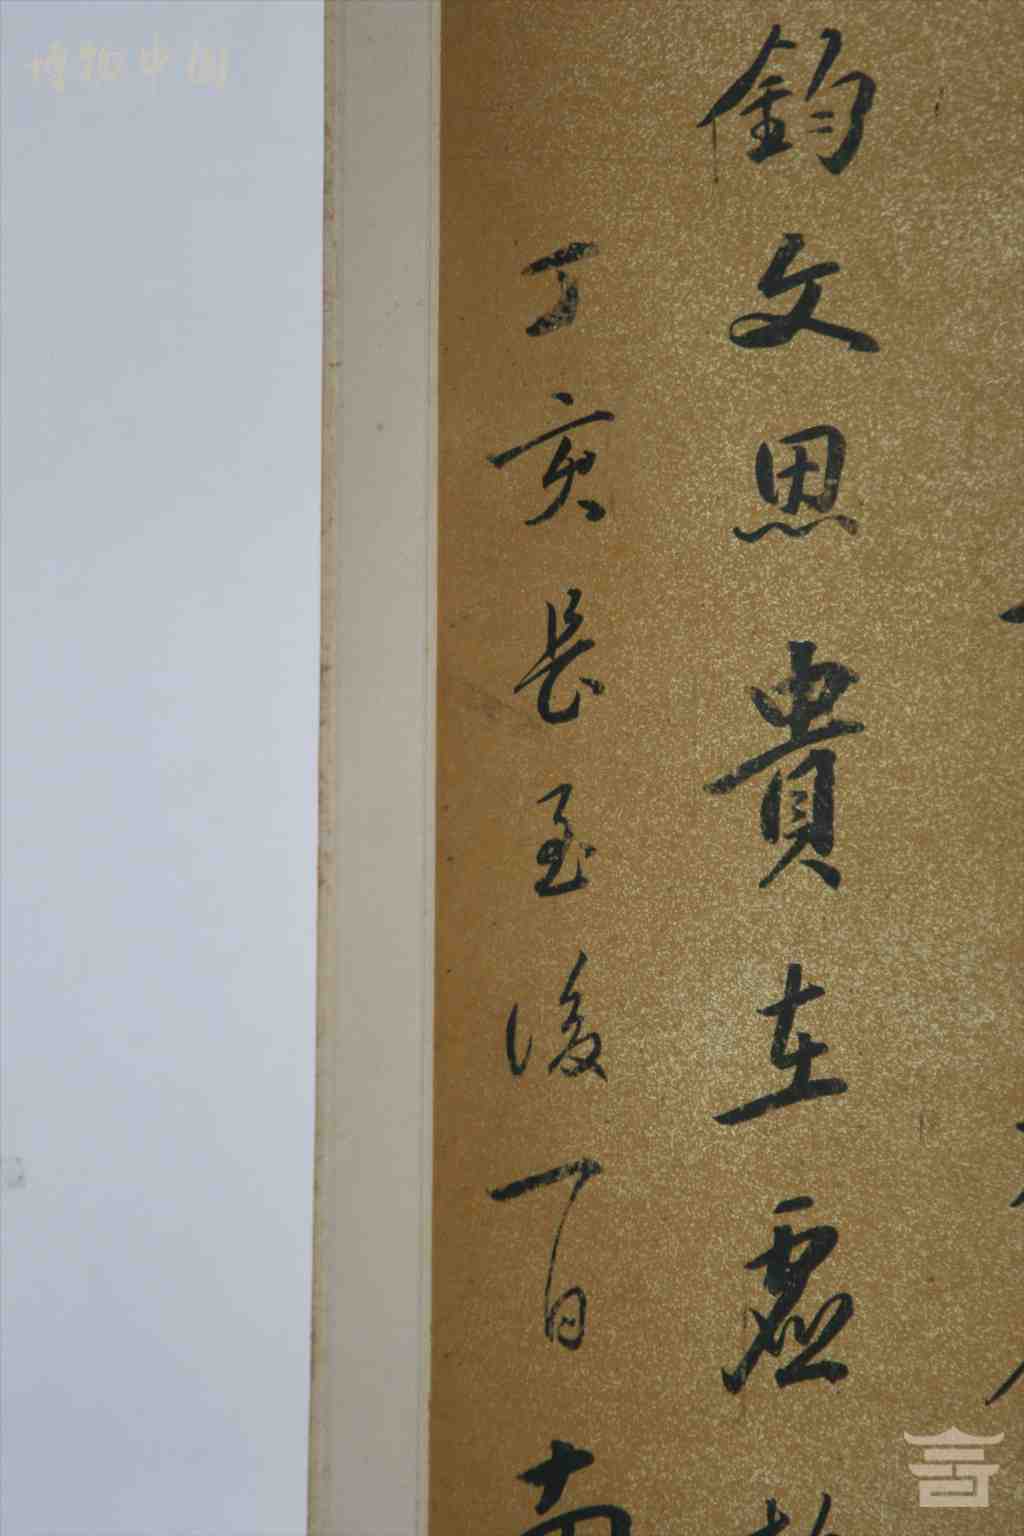 鈞文思貴在虛
丁亥長至後一日南
博物中國